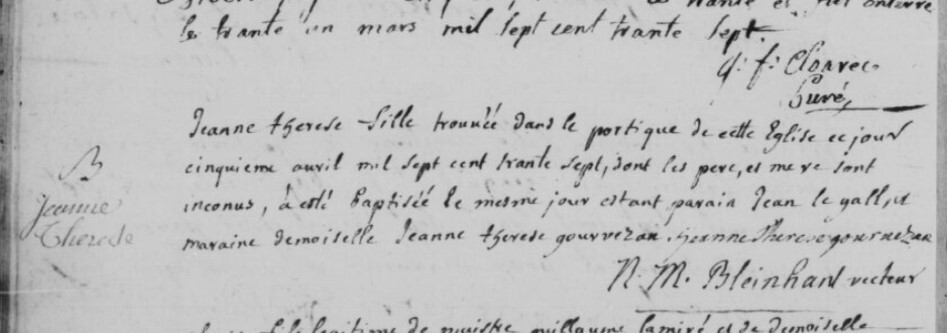 le trante un mars mil sept cent trante sept.
g: f: Cloarec
Curé,
B
Jeanne
Therese
Jeanne therese fille trouvéé dans le portique de cette Eglise ce jour
cinquieme avril mil sept cent trante sept, dont les pere, et mere sont
inconus, à esté Baptiséé le mesme jour estant parain Jean le gall, et
maraine demoiselle Jeanne therese gourvezau. Jeanne Therese gourvezau
N. M. Bleinhant recteur
fils legitime de guillaume lamiré et de demoiselle